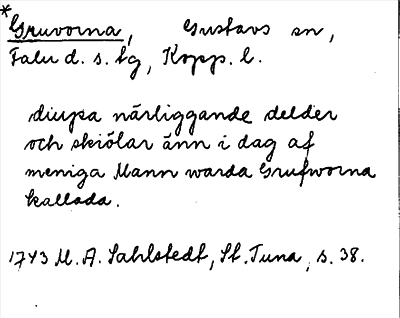 *Gruvorna, Gustavs sn,
Falu d. s. tg, Kopp. l.
diupa närliggande delder
och skiölar änn i dag af
meniga Mann warda Grufworna
kallada.
1743 M. A. Sahlstedt, St. Tuna, s. 38.